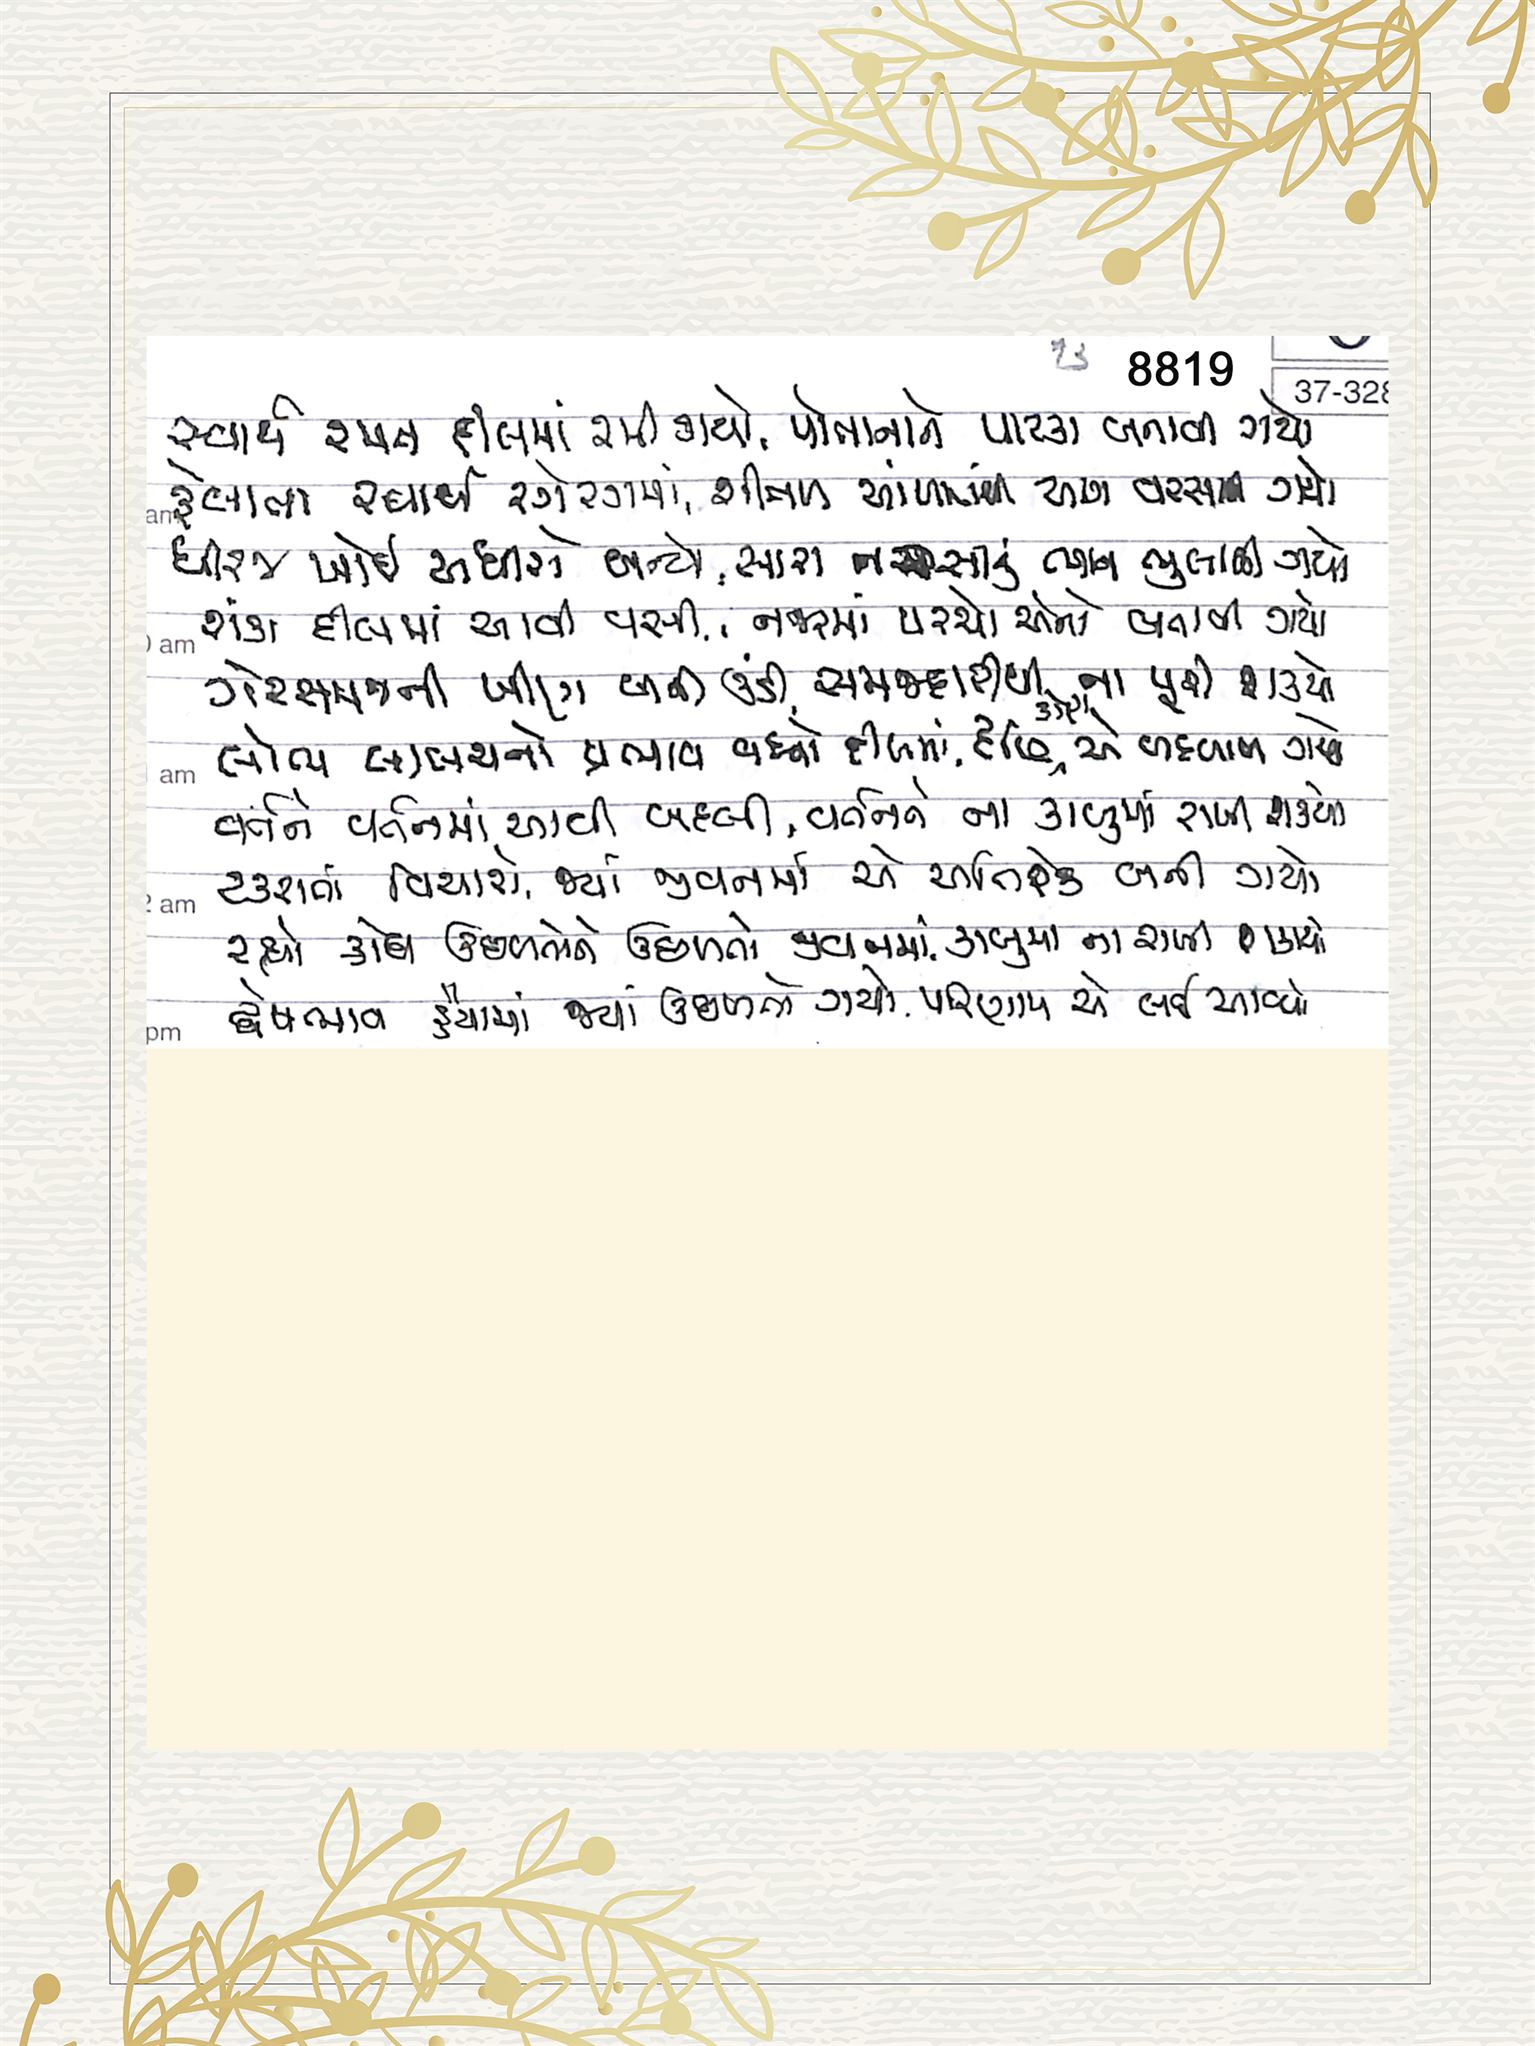 73 8819
37-328
સ્વાર્થ રમત દીલમાં રમી ગયો, પોતાનાને પારકા બનાવી ગયો
am ફેલાતા સ્વાર્થ રગેરગમાં, શીતળ આંખોમાં વરસાવી ગયો
ધીરજ ખોઈ અધીરો બન્યો, સારા નરસાનું ભાન ભુલાવી ગયો
am શંકા દીલમાં આવી વસી, નજરમાં પરચો એનો બતાવી ગયો
ગેરસમજની ખીણ બની ઉંડી, સમજદારીથી ના પૂરી શક્યો
am લોભ લાલચનો પ્રભાવ વધ્યો દીલમાં, એ બદલાઈ ગયો
વર્તને વર્તનમાં આવી બદલી, વર્તનને ના કાબુમાં રાખી શક્યો
2 am ટકરાતાં વિચારો, જ્યાં જીવનમાં એ અતિરેક બની ગયો
રહ્યો ક્રોધ ઉછળતોને ઉછળતો જીવનમાં, કાબુમા ના રાખી શક્યો
pm દ્વેષભાવ હૈયામાં જ્યાં ઉછળતો ગયો, પરિણામ એ લઈ આવ્યો